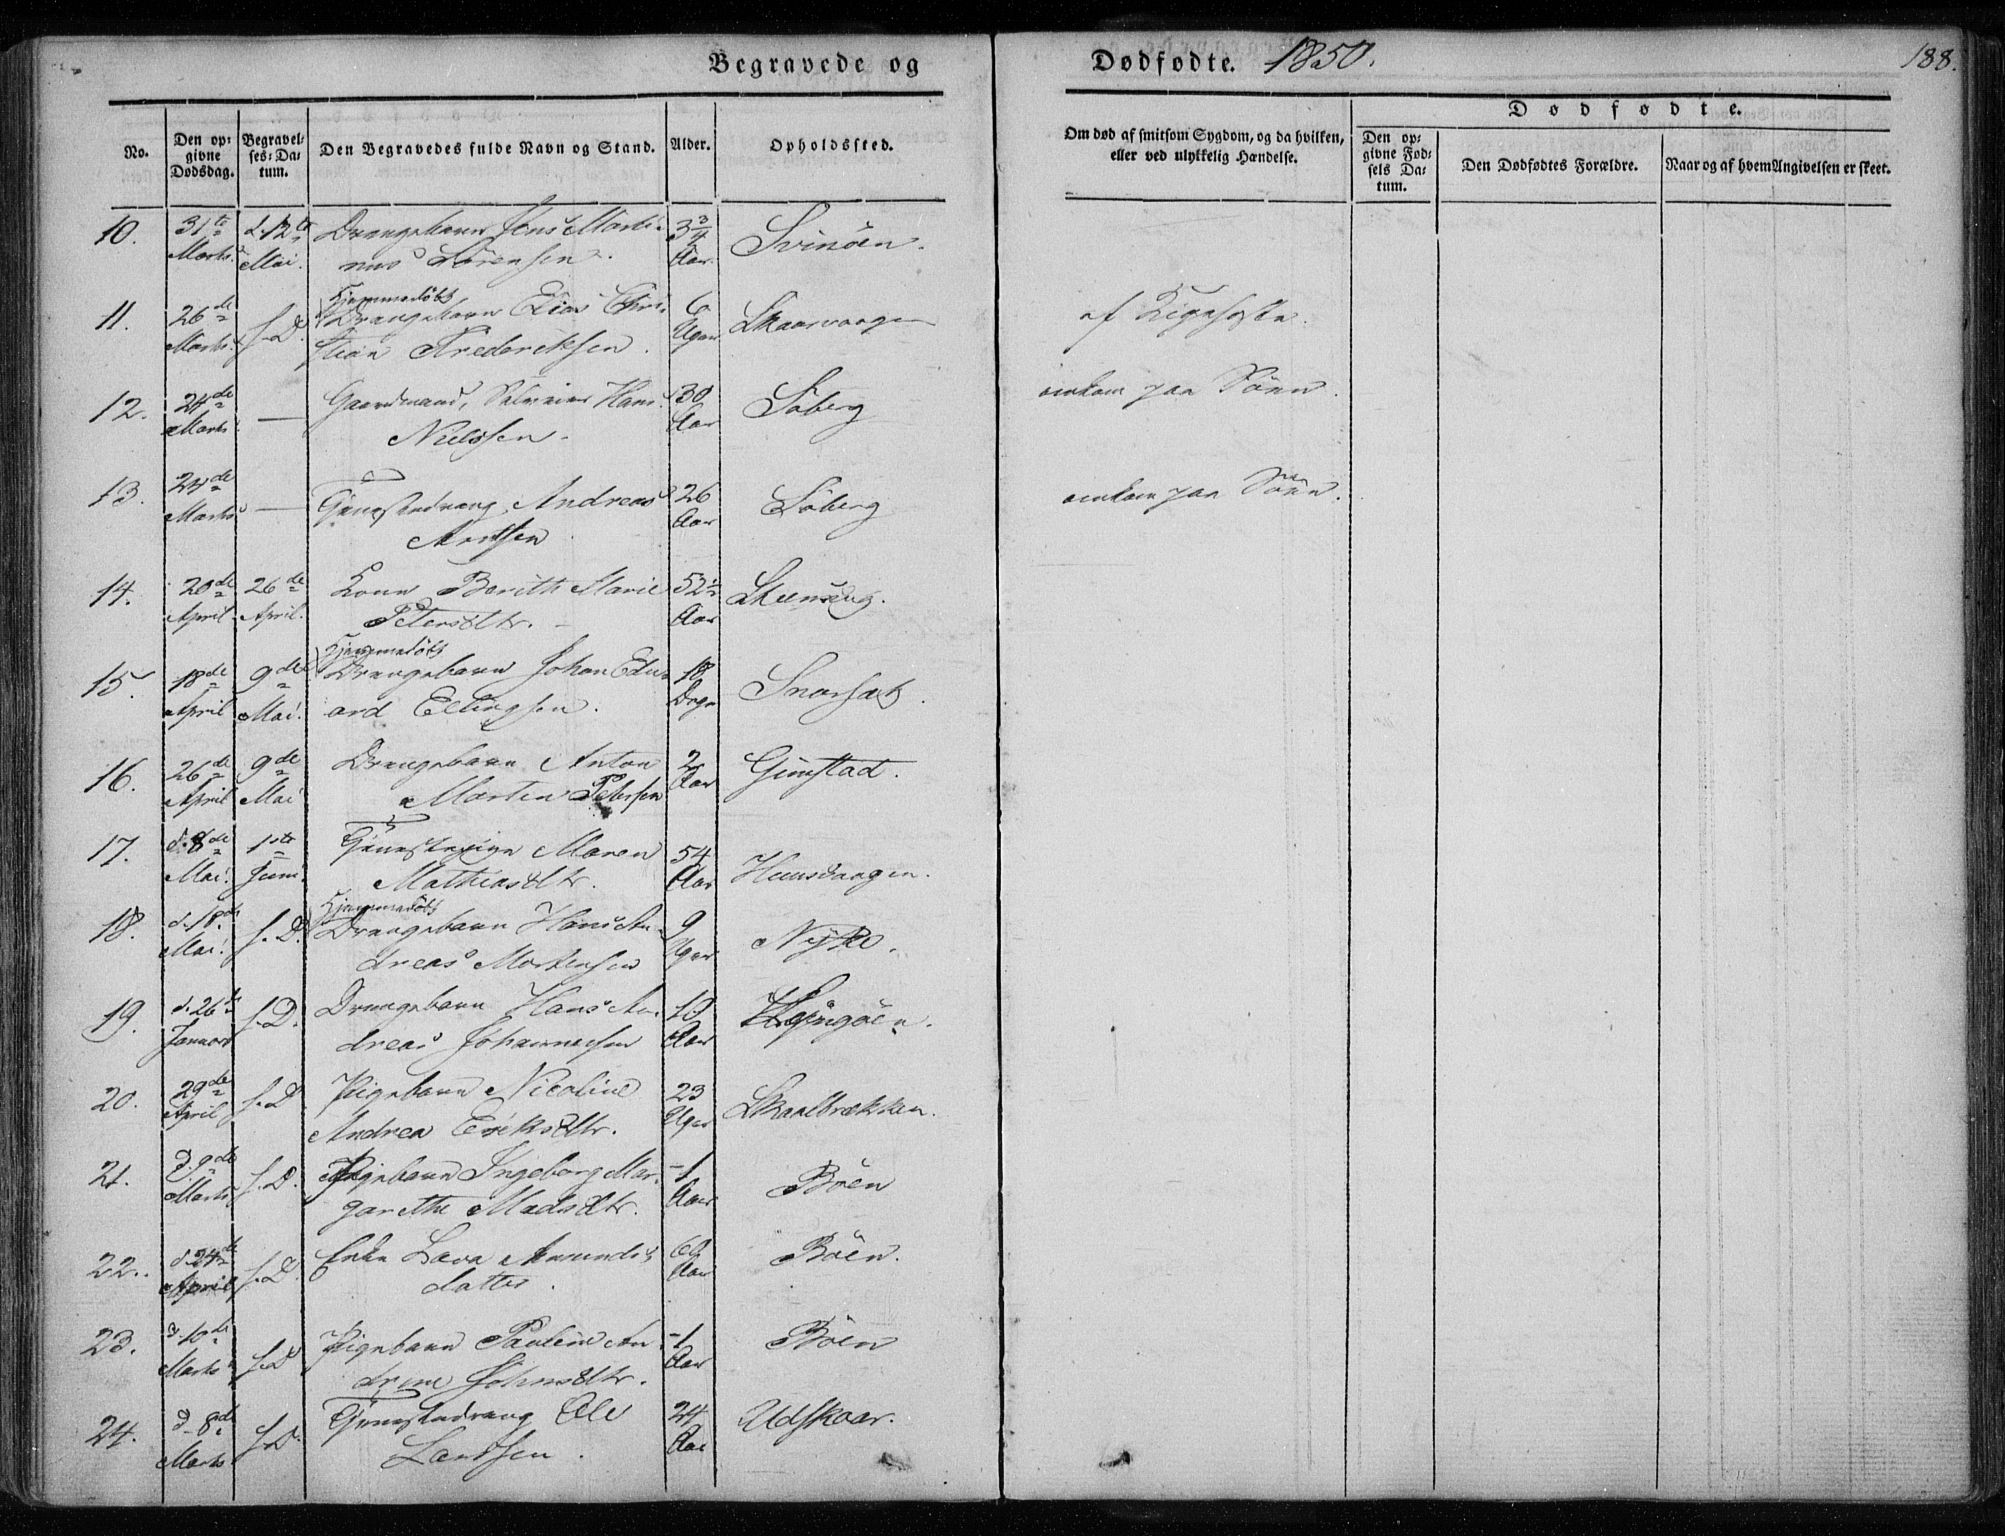 Begravede og Dødfødte. 1850. 188.
No. Den opgivne Dødsdag. Begravelses-Datum. Den Begravedes fulde Navn og Stand. Alder. Opholdssted. Om død af smitsom Sygdom, og da hvilken, eller ved ulykkelig Hændelse. Dødfødte. Den opgivne Fødsels Datum. Den Dødfødtes Forældre. Naar og af hvem Angivelsen er skeet.
10. 31te d. 12te Drengebarn Jens Marti- 3 3/4 Svinöen.
Marts. Mai. nus Sörensen. Aar.
Hjemmedöbt
11. 26de s. D. Drengebarn Elias Chri- 6 Skaarvaagen af Kighoste.
Marts. stian Frederiksen. Uger
12. 24de — Gaardmand, Hans 30 Söberg omkom paa Söen.
Marts Nielssen. Aar
13. 24de — Tjenestedreng, Andreas 26 Söberg omkom paa Söen.
Marts Arntsen Aar
14. 20de 26de Kone Berith Marie 52 1/2
April April. Petersdtr. Aar
Hjemmedöbt
15. 18de 9de Drengebarn Johan Edu- 18 Snarset.
April Mai. ard Ellingsen. Dage
16. 26de 9de Drengebarn Anton 2 Gimstad.
April Mai Morten Petersen Aar
17. d. 8de 1ste Tjenestepige Maren 54
Mai. Juni. Mathiasdtr. Aar
Hjemmedöbt
18. d. 18de s. D. Drengebarn Hans An- 9 Nyke.
Mai. dreas Mortensen Uger
19. d. 26de s. D. Drengebarn Hans An- 10
Januar dreas Johannessen Aar
20. 29de s. D. Pigebarn Nicoline 23 Skaalbrækken.
April Andrea Eriksdtr. Uger
21. d. 9de s. D. Pigebarn Ingeborg Mar- 1 Böen
Marts garethe Madsdtr. Aar
22. d. 24de s. D. Enke Lava Amunds- Böen.
April datter. Aar
23. d. 10de s. D. Pigebarn Pauline An- 1 Böen
Marts drine Johnsdtr. Aar
24. d. 8de s. D. Tjenestedreng Ole 24 Udskaar.
Marts Larssen. Aar